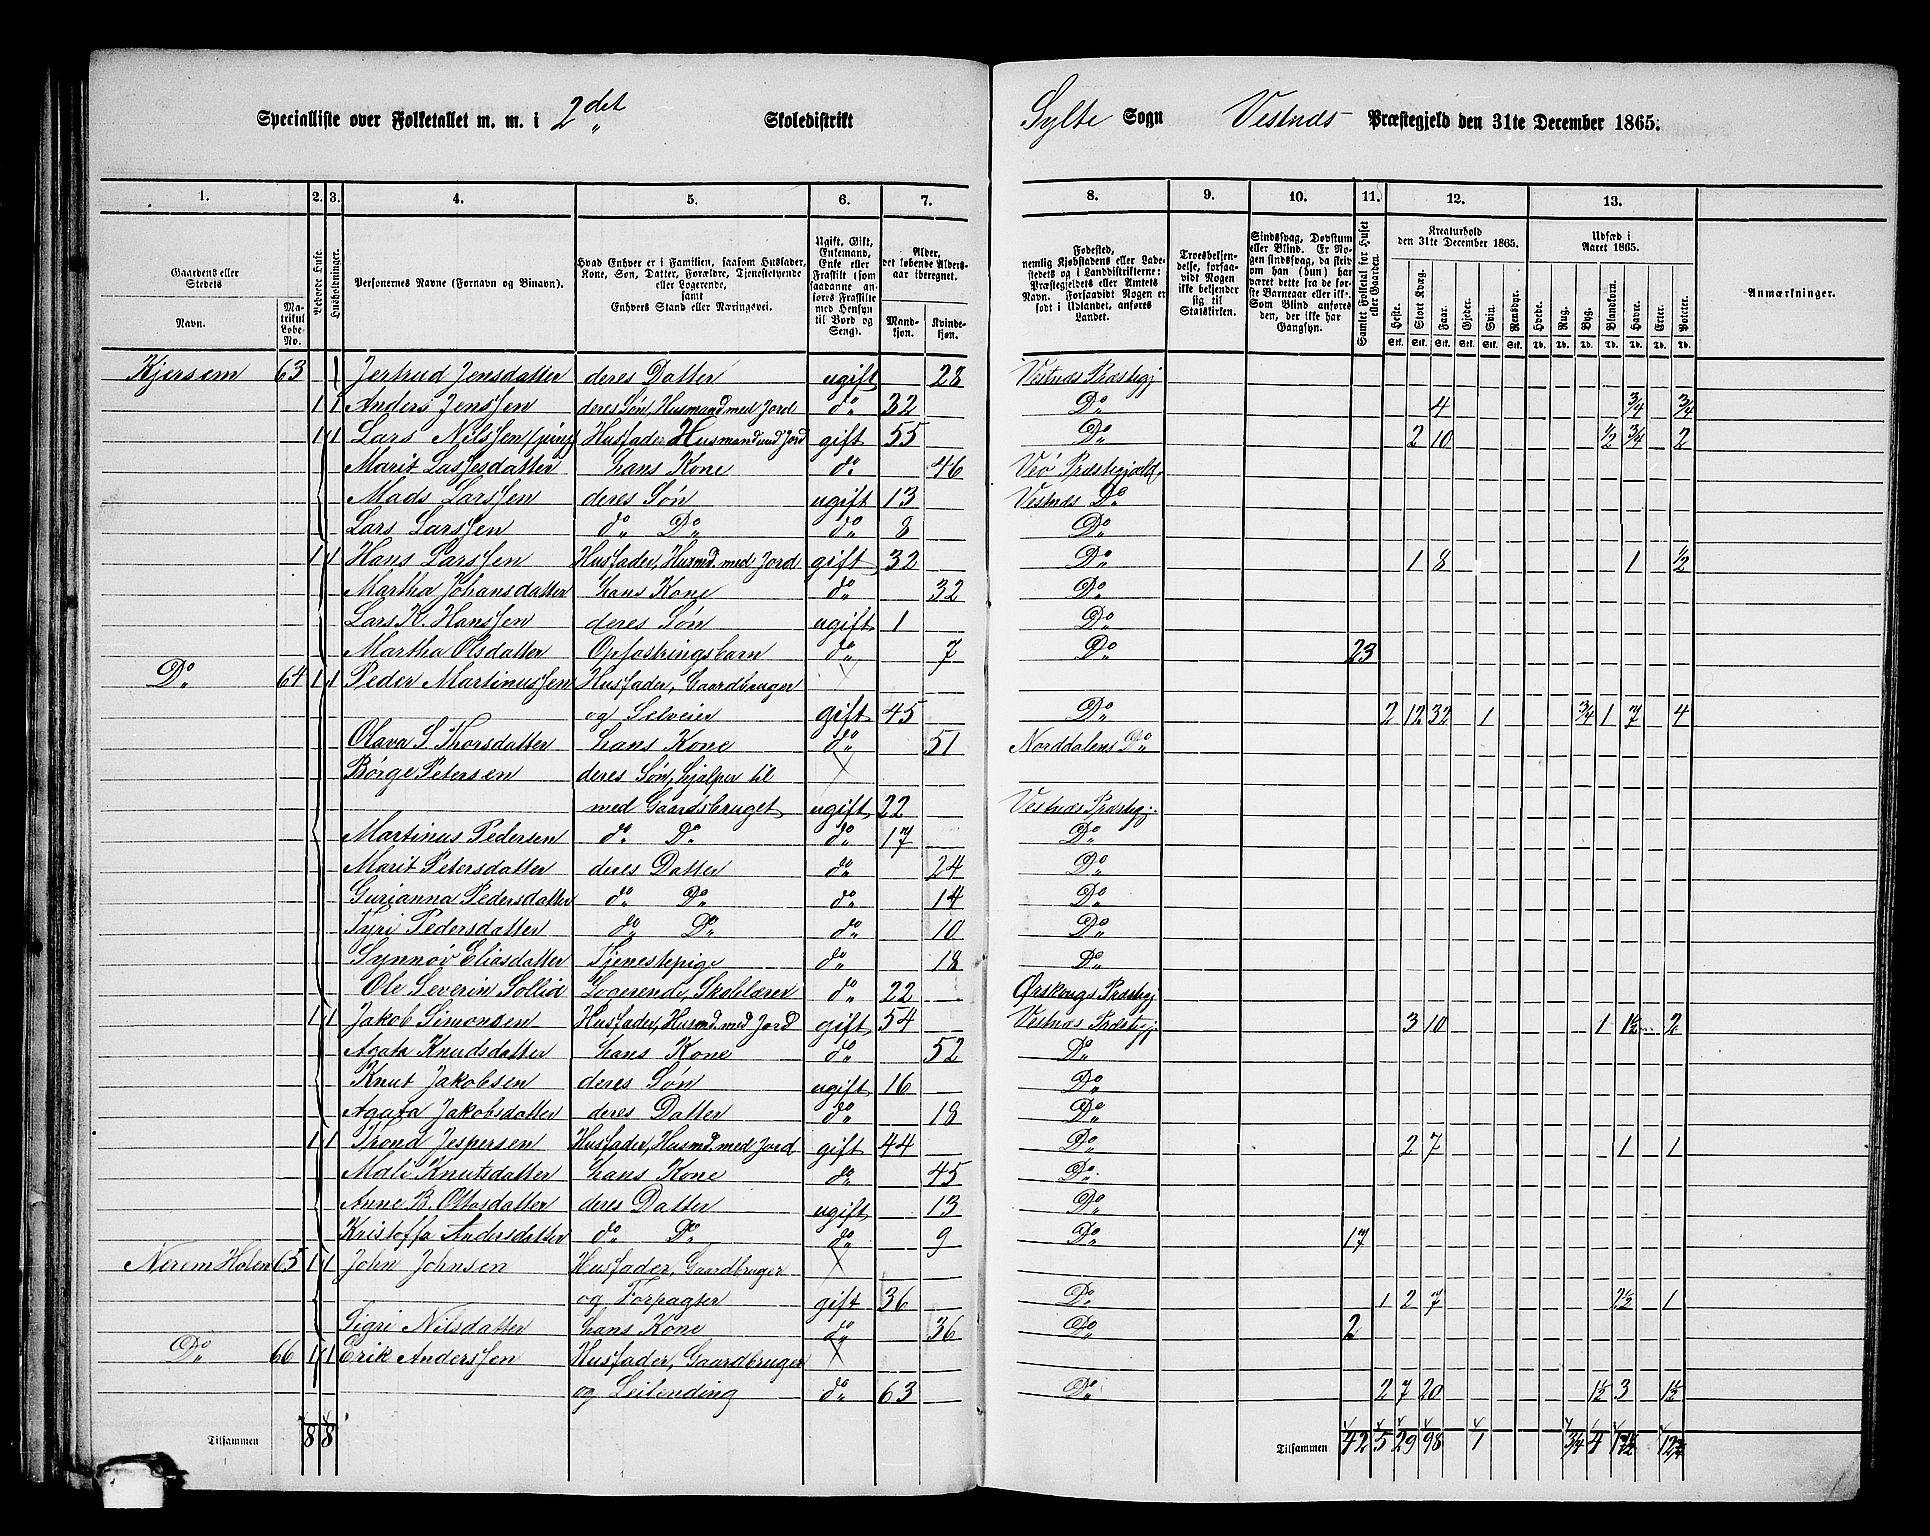 Specialliste over Folketallet m. m. i 2det Skoledistrikt Sylte Sogn Vestnæs Præstegjeld den 31te December 1865.
1. 2. 3. 4. 5. 6. 7. 8. 9. 10. 11. 12. 13.
Gaardens eller Stedets Navn. Matrikul Løbe-No. Beboede Huse. Husholdninger. Personernes Navne (Fornavn og Binavn). Hvad Enhver er i Familien, saasom Husfader, Kone, Søn, Datter, Forældre, Tjenestetyende eller Logerende, samt Enhvers Stand eller Næringsvei. Ugift, Gift, Enkemand, Enke eller Fraskilt (som saadanne anføres Fraskilte med Hensyn til Bord og Seng). Alder, det løbende Aldersaar iberegnet. Mandkjøn. Kvindekjøn.
Fødested, nemlig Kjøbstadens eller Ladestedets og i Landdistrikterne: Præstegjeldets eller Amtets Navn. Forsaavidt Nogen er født i Udlandet, anføres Landet. Troesbekjendelse, forsaavidt Nogen ikke bekjender sig til Statskirken. Sindssvag, Døvstum eller Blind. Er Nogen sindssvag, da skrives om han (hun) har været dette fra de første Barneaar eller ikke. Som Blind anføres den, der ikke har Gangsyn. Samlet Folketal for Huset eller Gaarden. Kreaturhold den 31te December 1865. Heste. Stort Kvæg. Faar. Gjeder. Svin. Rensdyr. Udsæd i Aaret 1865. Hvede. Rug. Byg. Blandkorn. Havre. Erter. Poteter. Anmærkninger.
Kjersem 63 1 Jertrud Jensdatter deres Datter ugift 28 Vestnæs Præstegj
1 1 Anders Jenssen deres Søn, Husmand med Jord do 32 Do 4 3/4 3/4
1 1 Lars Nilssen (ving) Husfader Husmand med Jord gift 55 Do 2 10 1/2 3/4 2
Marit Lassesdatter hans Kone do 46 Veø Præstegjæld
Mads Larssen deres Søn ugift 13 Vestnæs Do
Lars Larssen do Do do 8 Do
1 1 Hans Larssen Husfader, Husmd. med Jord gift 32 Do 1 8 1 1/2
Martha Johansdatter hans Kone do 32 Do
Lars K. Hanssen deres Søn ugift 1 Do
Martha Olsdatter Opfostringsbarn do 7 Do 23
Do 64 1 1 Peder Martinussen Husfader, Gaardbruger
og Selveier gift 45 Do 2 12 32 1 3/4 1 7 4
Olava S. Thorsdatter hans Kone do 51 Norddalens Do
Børge Petersen deres Søn, hjælper til
med Gaardsbruget ugift 22 Vestnæs Præstegj.
Martinus Pedersen do Do do 17 Do
Marit Petersdatter deres Datter do 24 Do
Gurianna Pedersdatter do Do do 14 Do
Tyri Pedersdatter do Do do 10 Do
Synnøv Eliasdatter Tjenestepige do 18 Do
Ole Severin Sollid Logerende, Skolelærer do 22 Ørskougs Præstegj
1 1 Jakob Simonsen Husfader, Husmd. med Jord gift 54 Vestnæs Præstegj. 3 10 1 1 1/2 2
Agata Knudsdatter hans Kone do 52 Do
Knut Jakobsen deres Søn ugift 16 Do
Agata Jakobsdatter deres Datter do 18 Do
1 1 Trond Jespersen Husfader, Husmd. med Jord gift 44 Do 2 7 1 1
Mali Knutsdatter hans Kone do 45 Do
Anne B. Ottosdatter deres Datter ugift 13 Do
Kristoffa Andersdatter do Do do 9 Do 17
Nerem Holen 65 1 1 John Johnsen Husfader, Gaardbruger
og Forpagter gift 36 Do 1 2 7 2 1/2 1
Sigri Nilsdatter hans Kone do 36 Do 2
Do 66 1 1 Erik Anderssen Husfader, Gaardbruger
og Leilending do 63 Do 2 7 20 1 1/2 3 1 1/2
Tilsammen 8 8 Tilsammen 42 5 29 98 1 3/4 4